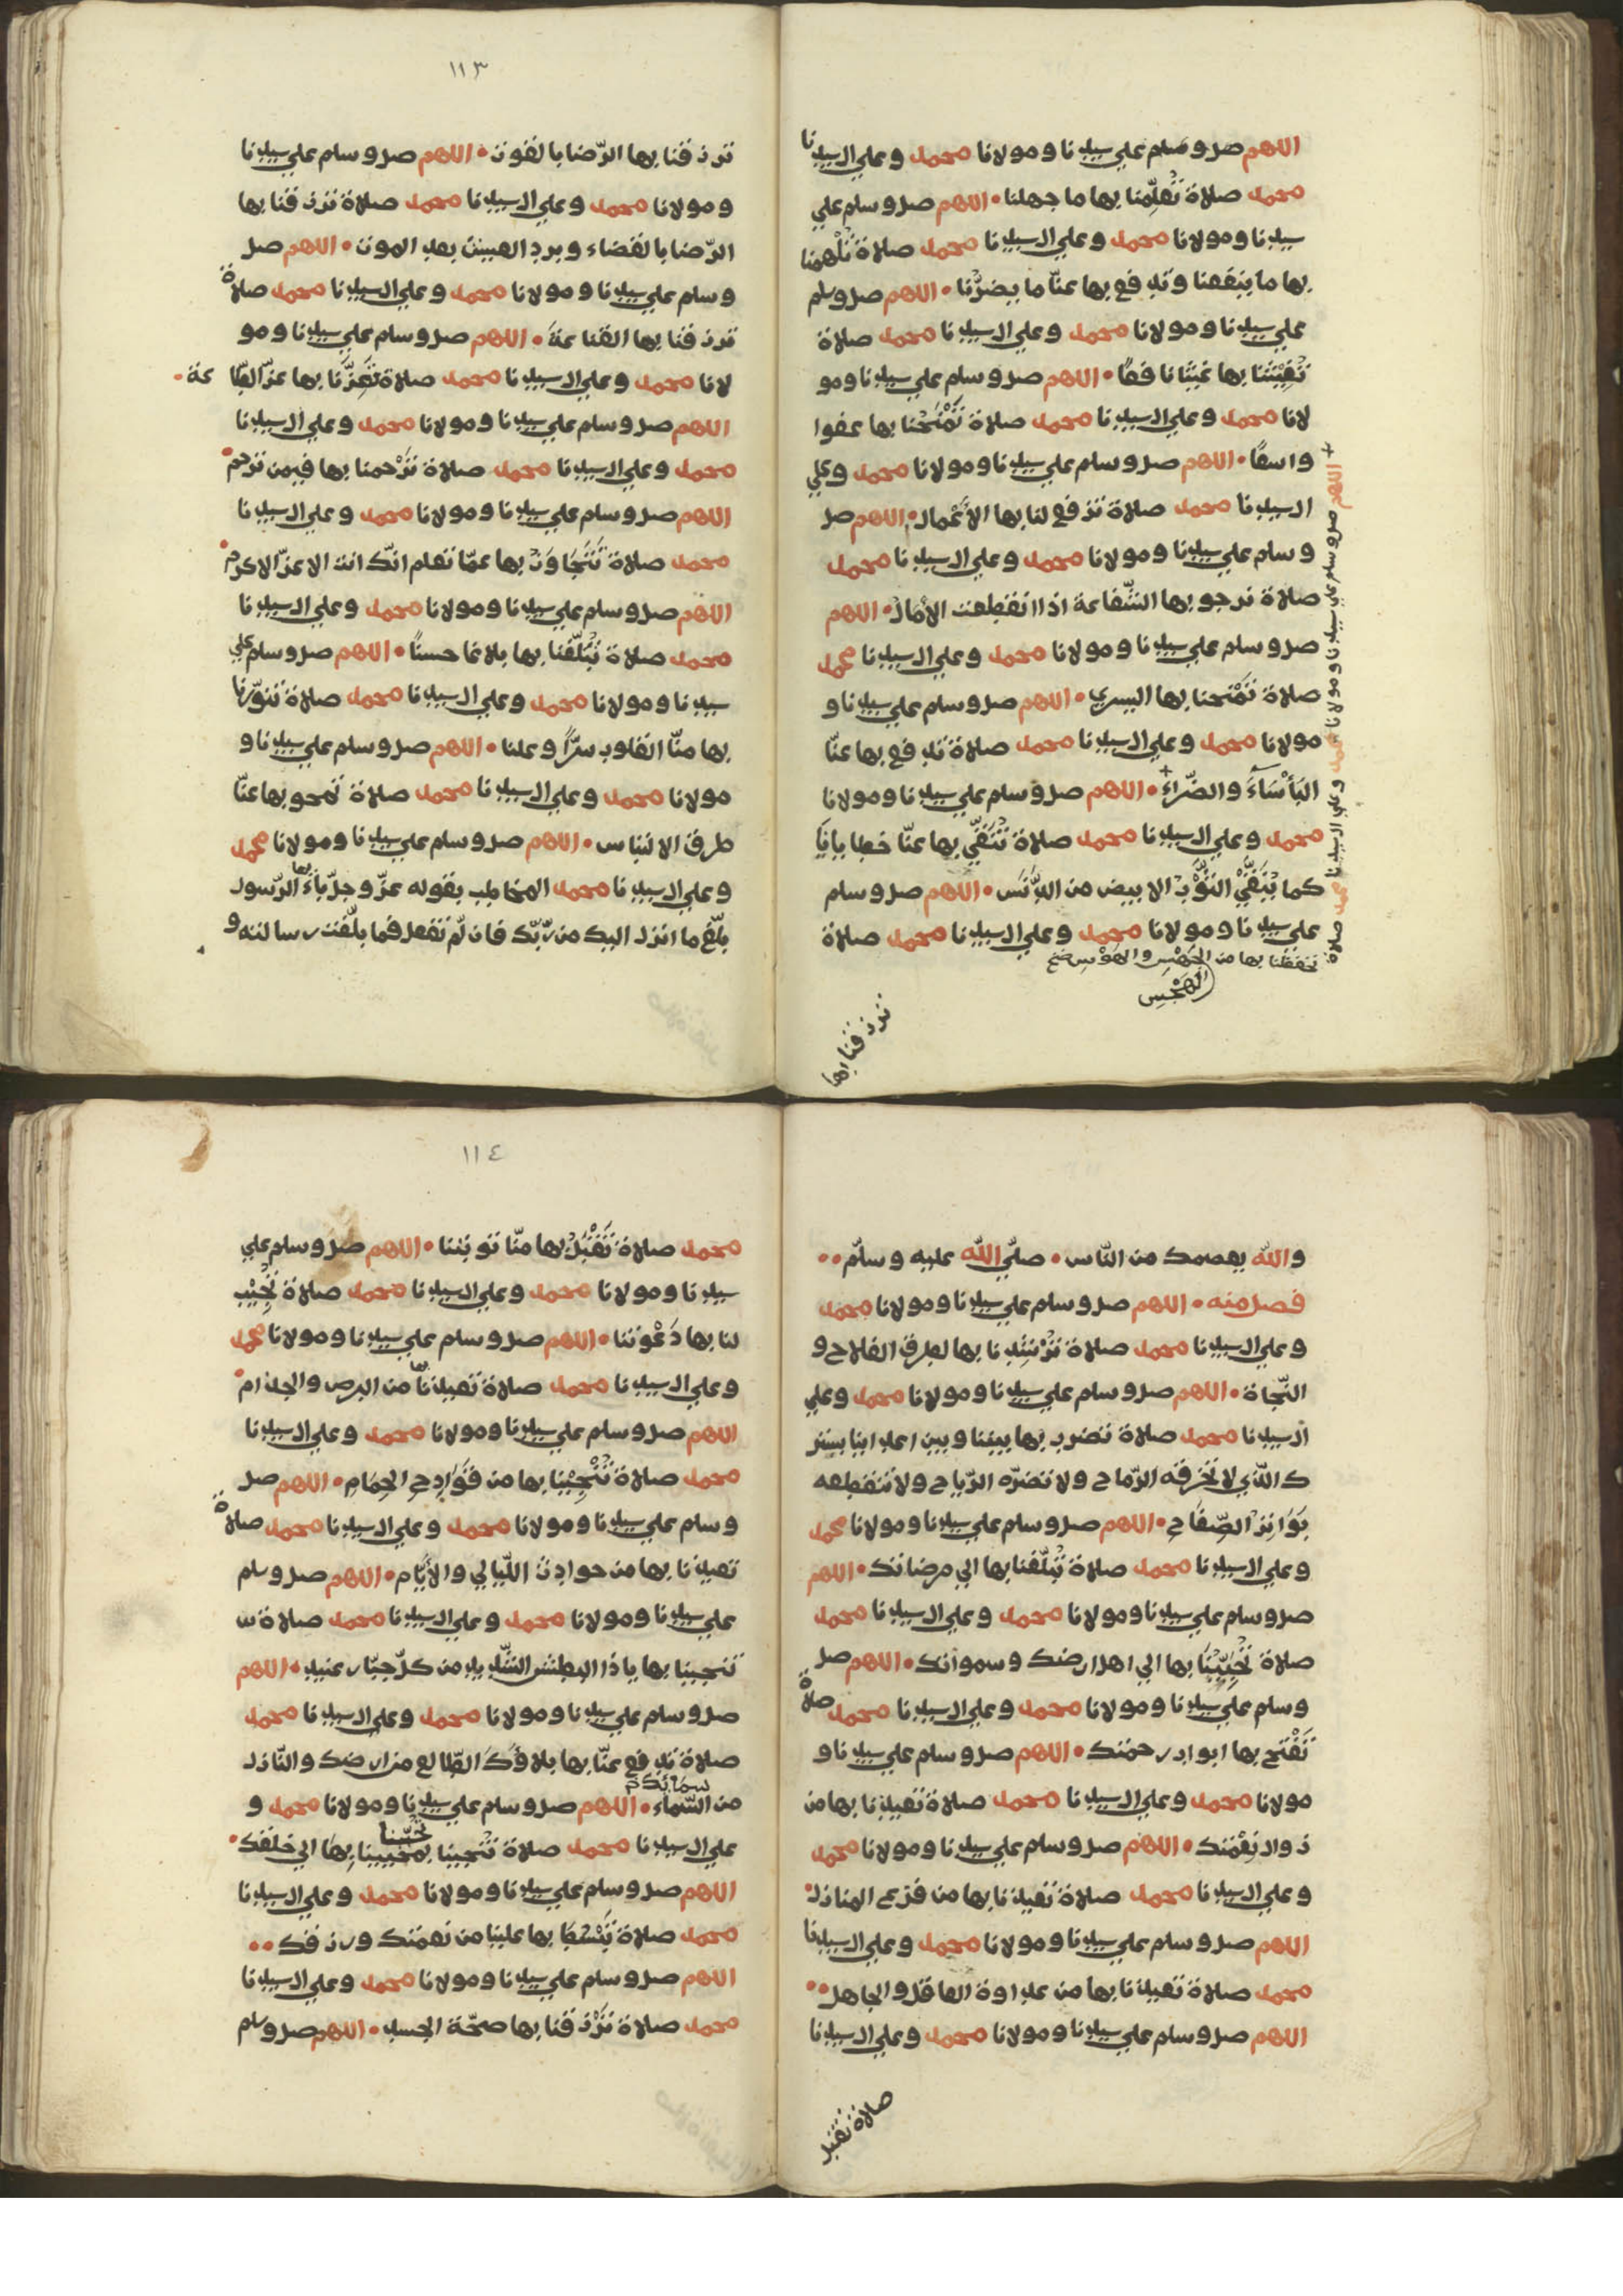 اللهم صل وسلم علي سيدنا ومولانا محمد وعلي ال سيدنا
محمد صلاة تُعَلِّمنا بها ما جهلنا • اللهم صل وسلم علي
سيدنا ومولانا محمد وعلي ال سيدنا محمد صلاة تُلْهِمنا
بها ما ينفعنا وتدفع بها عنّا ما يضرّنا • اللهم صل وسلم
علي سيدنا ومولانا محمد وعلي ال سيدنا محمد صلاة
تُغِيْثنا بها غيثا نافعًا • اللهم صل وسلم علي سيدنا ومو
لانا محمد وعلي ال سيدنا محمد صلاة تَمْنَحُنا بها عفوا
واسعًا • اللهم صل وسلم علي سيدنا ومولانا محمد وعلي
ال سيدنا محمد صلاة ترفع لنا بها الاَعْمال • اللهم صل
وسلم علي سيدنا ومولانا محمد وعلي ال سيدنا محمد
صلاة نرجو بها الشّفاعة اذا انقطعت الاٰمال • اللهم
صل وسلم علي سيدنا ومولانا محمد وعلي ال سيدنا محمد
صلاة تَمْنحنا بها اليسري • اللهم صل وسلم علي سيدنا و
مولانا محمد وعلي ال سيدنا محمد صلاة تدفع بها عنّا
البَأْسَآءَ والضّراءَ • اللهم صل وسلم علي سيدنا ومولانا
محمد وعلي ال سيدنا محمد صلاة تُنَقِّي بها عنّا خطايانَا
كما يُنَقَّيْ الثَّوْبُ الابيض من الدَّنَس • اللهم صل وسلم
علي سيدنا ومولانا محمد وعلي ال سيدنا محمد صلاة
اللهم صل وسلم علي سيدنا ومولانا محمد وعلي ال سيدنا محمد صلاة
تحفظنا بها من
ترزقنا بها
١١٣
ترزقنا بها الرّضا بالقوت • اللهم صل وسلم علي سيدنا
ومولانا محمد وعلي ال سيدنا محمد صلاة ترزقنا بها
الرّضا بالقضاء وبرد العيش بعد الموت • اللهم صل
وسلم علي سيدنا ومولانا محمد وعلي ال سيدنا محمد صلاة
ترزقنا بها القناعةَ • اللهم صل وسلم علي سيدنا ومو
لانا محمد وعلي ال سيدنا محمد صلاة تُعِزُّنَا بها عزّ الطّا عة •
اللهم صل وسلم علي سيدنا ومولانا محمد وعلي ال سيدنا
محمد وعلي ال سيدنا محمد صلاة تَرْحمنا بها فيمن ترحم •
اللهم صل وسلم علي سيدنا ومولانا محمد وعلي ال سيدنا
محمد صلاة تَتَجَاوَزُ بها عمّا تعلم انّك انت الاعزّ الاكرم •
اللهم صل وسلم علي سيدنا ومولانا محمد وعلي ال سيدنا
محمد صلاة تُبَلِّغُنا بها بلاغا حسنًا • اللهم صل وسلم علي
سيدنا ومولانا محمد وعلي ال سيدنا محمد صلاة تنوّرنا
بها منّا القلوب سرًّا وعلنا • اللهم صل وسلم علي سيدنا و
مولانا محمد وعلي ال سيدنا محمد صلاة تمحو بها عنّا
طرق الالتباس • اللهم صل وسلم علي سيدنا ومولانا محمد
وعلي ال سيدنا محمد المخاطب بقوله عزّ وجلّ ياءَيها الرّسول
بلّغ ما انزل اليك من ربّك فان لّم تفعل فما بلّغت رسالته و
والله يعصمك من النّاس • صلّي الله عليه وسلّم ••
فصل منه • اللهم صل وسلم علي سيدنا ومولانا محمد
وعلي ال سيدنا محمد صلاة تُرْشِدنا بها لطرق الفلاح و
النّجاة • اللهم صل وسلم علي سيدنا ومولانا محمد وعلي
ال سيدنا محمد صلاة تضرب بها بيننا وبين اعداينا بستر
ك الّذي لا تَخرقه الرّماح ولا تضرّه الرّياح ولا تنقطعه
بَوَاتِرُ الصِّفَاحِ • اللهم صل وسلم علي سيدنا ومولانا محمد
وعلي ال سيدنا محمد صلاة تُبَلّغنا بها الي مرضاتك • اللهم
صل وسلم علي سيدنا ومولانا محمد وعلي ال سيدنا محمد
صلاة تُحَبِّبُنَا بها الي اهل ارضك وسمواتك • اللهم صل
وسلم علي سيدنا ومولانا محمد وعلي ال سيدنا محمد صلاة
تَفْتح بها ابواب رحمتك • اللهم صل وسلم علي سيدنا و
مولانا محمد وعلي ال سيدنا محمد صلاة تعيذنا بها من
زوال نِعْمتك • اللهم صل وسلم علي سيدنا ومولانا محمد
وعلي ال سيدنا محمد صلاة تعيذنا بها من فزع المنازل •
اللهم صل وسلم علي سيدنا ومولانا محمد وعلي ال سيدنا
محمد صلاة تعيذنا بها من عداوة العاقل والجاهل ••
اللهم صل وسلم علي سيدنا ومولانا محمد وعلي ال سيدنا
صلاة تقبل
١١٤
محمد صلاة تَقْبَلُ بها منّا توبتنا • اللهم صل وسلم علي
سيدنا ومولانا محمد وعلي ال سيدنا محمد صلاة تُجِيْب
لنا بها دَعْوتنا • اللهم صل وسلم علي سيدنا ومولانا محمد
وعلي ال سيدنا محمد صلاة تعيذنا بها من البرص والجذام •
اللهم صل وسلم علي سيدنا ومولانا محمد وعلي ال سيدنا
محمد صلاة تُنْجِيْنا بها من فَوَادِحِ الحِمَامِ • اللهم صل
وسلم علي سيدنا ومولانا محمد وعلي ال سيدنا محمد صلاة
تعيذنا بها من حوادث اللّيالي والاَيّام • اللهم صل وسلم
علي سيدنا ومولانا محمد وعلي ال سيدنا محمد صلاة
تنجينا بها يا ذا البطش الشّديد من كلّ جبّار عنيد • اللهم
صل وسلم علي سيدنا ومولانا محمد وعلي ال سيدنا محمد
صلاة تدفع عنّا بها بلاؤكَ الطّالع من ارضك والنّازل
من السّماء • اللهم صل وسلم علي سيدنا ومولانا محمد و
علي ال سيدنا محمد صلاة بِهَا الي خلقك •
اللهم صل وسلم علي سيدنا ومولانا محمد وعلي ال سيدنا
محمد صلاة تَبْسُطُ بها علينا من نعمتك ورزقك ••
اللهم صل وسلم علي سيدنا ومولانا محمد وعلي ال سيدنا
محمد صلاة تَرْزقنا بها صحّة الجسد • اللهم صل وسلم